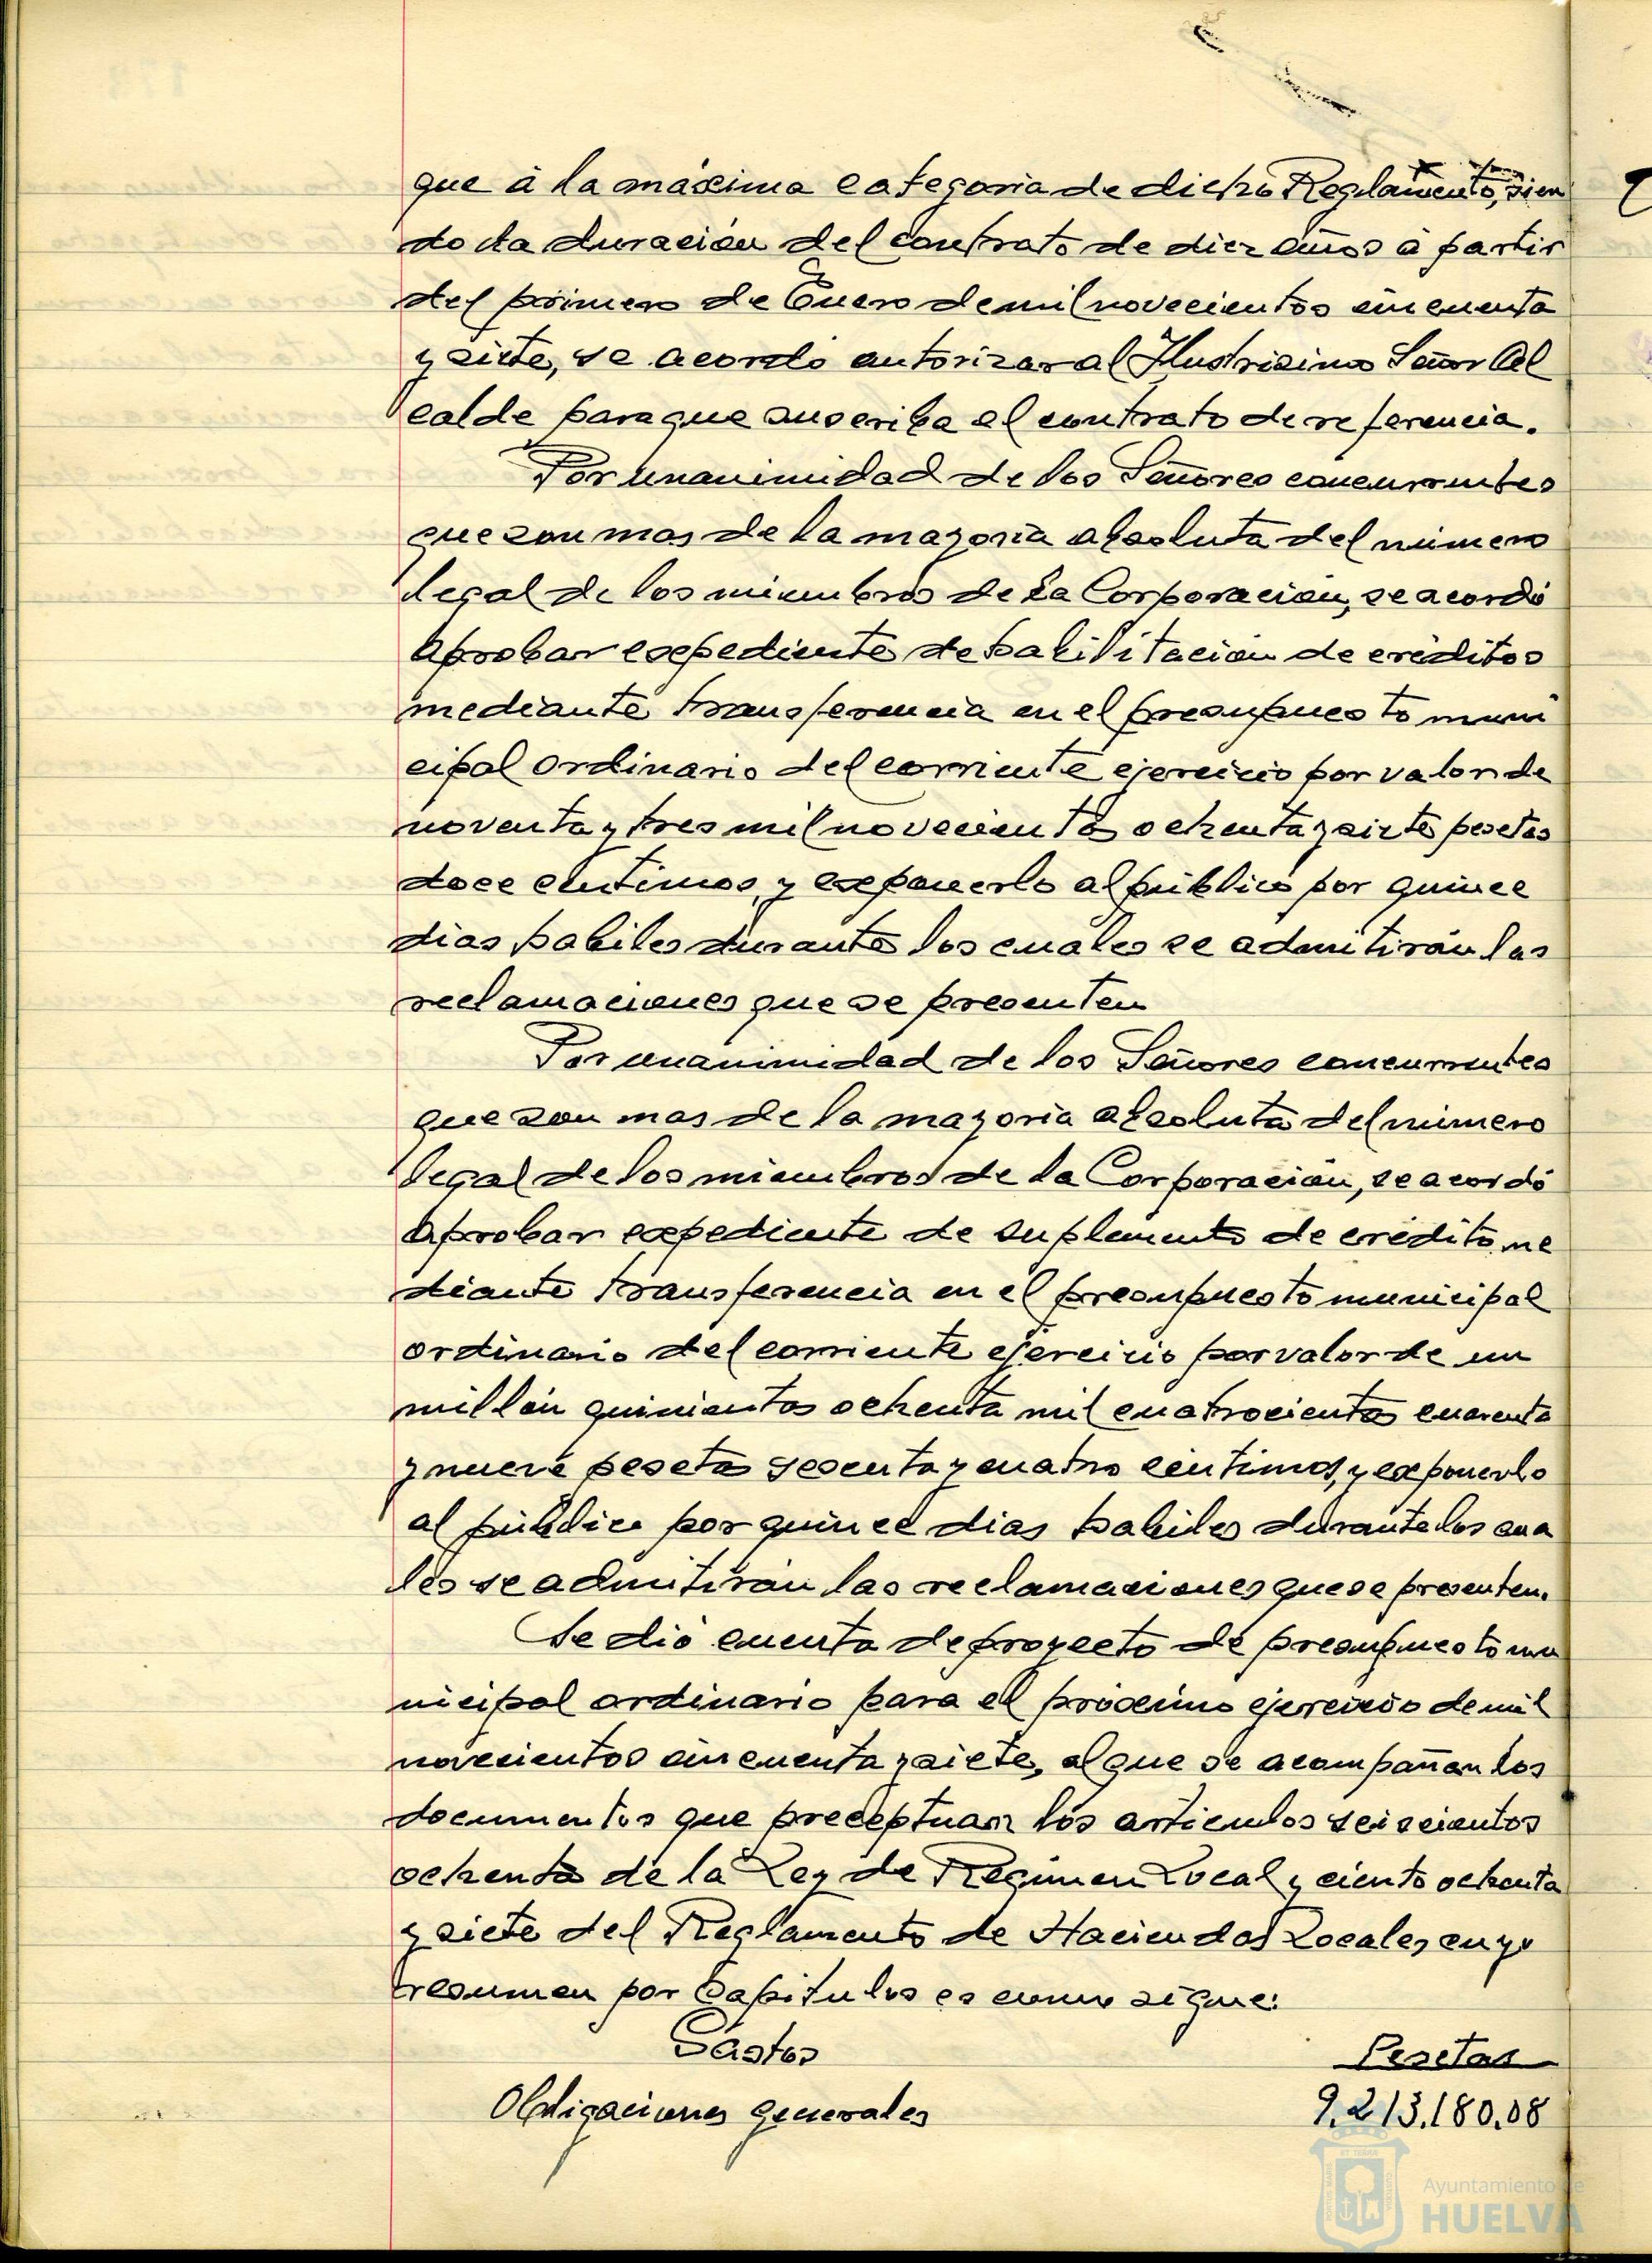 que á la máxima categoria de dicho Reglamento, sien
do la duración del contrato de diez años á partir
del primero de Enero de mil novecientos cincuenta
y siete, se acordó autorizar al Ilustrisimo Señor Al
calde para que suscriba el contrato de referencia.
Por unanimidad de los Señores concurrentes
que son mas de la mayoria absoluta del número
legal de los miembros de la Corporación, se acordó
aprobar expediente de habilitación de créditos
mediante transferencia en el presupuesto muni
cipal ordinario del corriente ejercicio por valor de
noventa y tres mil novecientas ochenta y siete pesetas
doce céntimos, y exponerlo al público por quince
dias habiles durante los cuales se admitirán las
reclamaciones que se presenten
Por unanimidad de los Señores concurrentes
que son mas de la mayoria absoluta del número
legal de los miembros de la Corporación, se acordó
aprobar expediente de suplemento de crédito me
diante transferencia en el presupuesto municipal
ordinario del corriente ejercicio por valor de un
millón quinientas ochenta mil cuatrocientas cuarenta
y nueve pesetas sesenta y cuatro céntimos, y exponerlo
al público por quince dias habiles durante los cua
les se admitirán las reclamaciones que se presenten.
Se dió cuenta de proyecto de presupuesto mu
nicipal ordinario para el próximo ejercicio de mil
novecientos cincuenta y siete, al que se acompañan los
documentos que preceptuan los articulos seiscientos
ochenta de la Ley de Régimen Local y ciento ochenta
y siete del Reglamento de Haciendas Locales, cuyo
resumen por Capitulos es como sigue:
Gastos Pesetas
Obligaciones generales 9.213.180,08
Ayuntamiento de
HUELVA